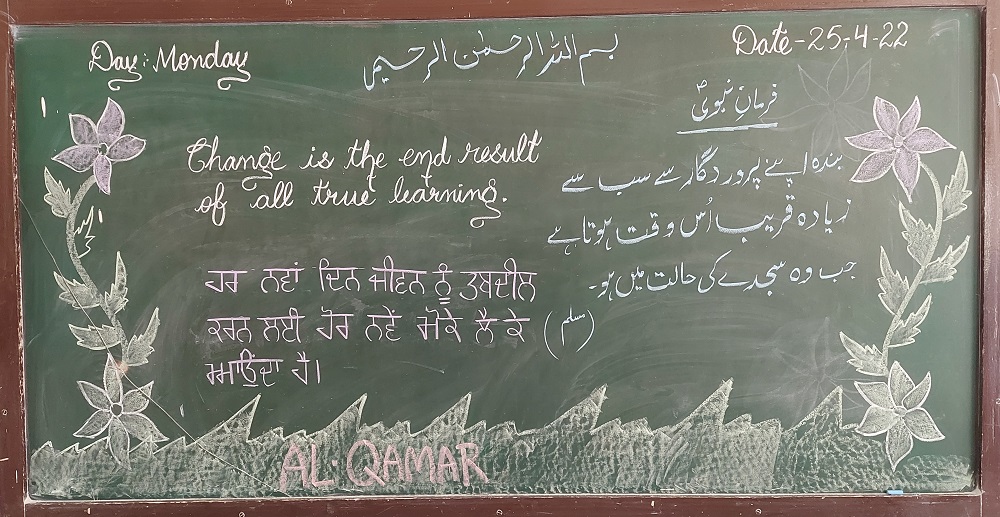 Day: Monday
بسم اللہ الرحمٰن الرحیم
Date-25-4-22
فرمانِ نبویؐ
Change is the end result
of all true learning.
بندہ اپنے پروردگار سے سب سے
زیادہ قریب اُس وقت ہوتا ہے
جب وہ سجدے کی حالت میں ہو۔
(مسلم)
ਹਰ ਨਵਾਂ ਦਿਨ ਜੀਵਨ ਨੂੰ ਤਬਦੀਲ
ਕਰਨ ਲਈ ਹੋਰ ਨਵੇਂ ਮੌਕੇ ਲੈ ਕੇ
ਹੈ।
AL-QAMAR